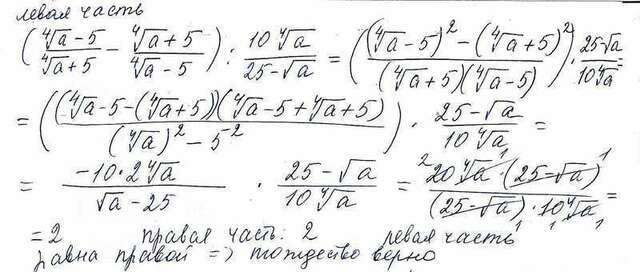 левая часть
(⁴√a - 5 / ⁴√a + 5 - ⁴√a + 5 / ⁴√a - 5) : 10⁴√a / 25 - √a = ((⁴√a - 5)² - (⁴√a + 5)² / (⁴√a + 5)(⁴√a - 5)) · 25 - √a / 10⁴√a =
= ((⁴√a - 5 - (⁴√a + 5))(⁴√a - 5 + ⁴√a + 5) / (⁴√a)² - 5²) · 25 - √a / 10⁴√a =
= -10 · 2⁴√a / √a - 25 · 25 - √a / 10⁴√a = ² 20⁴√a¹ · (25 - √a)¹ / (25 - √a)₁ · 10⁴√a₁ =
= 2 правая часть: 2 левая часть
равна правой => тождество верно